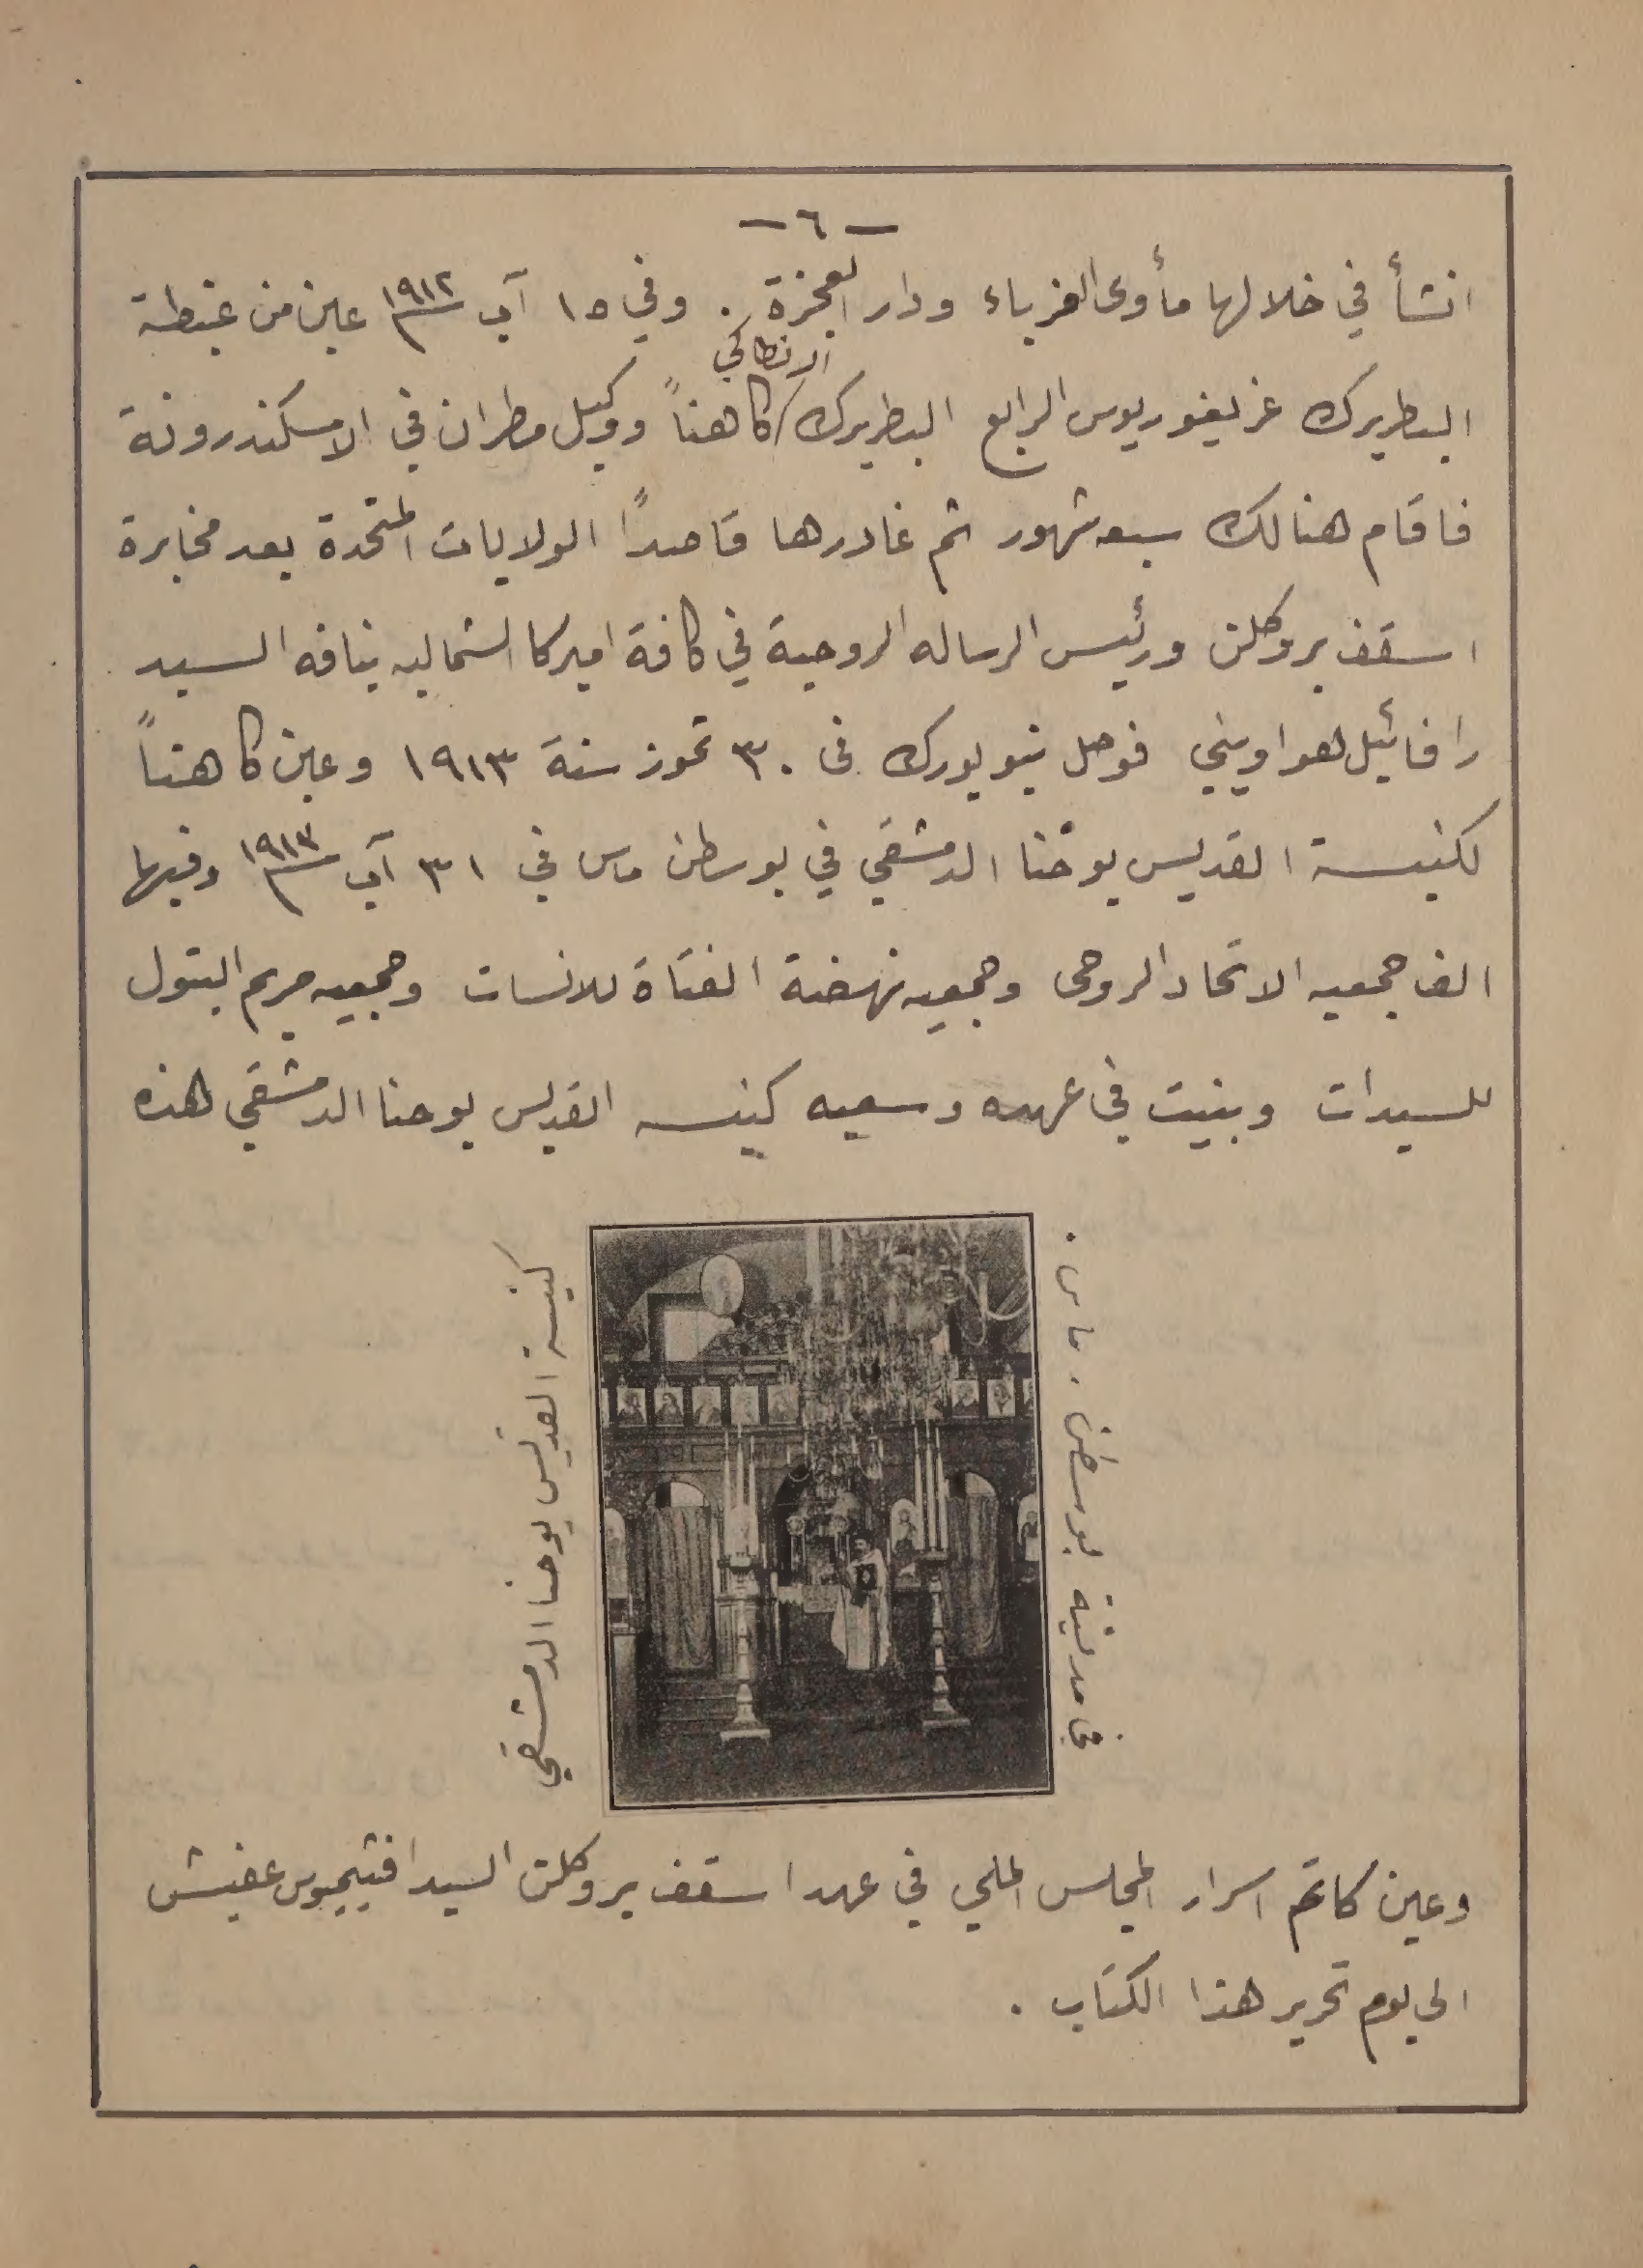 — ٦ —
انشأ في خلالها مأوى الغرباء ودار العجزة . وفي ١٥ آب ١٩١٢ عين من غبطة
الانطاكي
البطريرك غريغوريوس الرابع البطريرك / كاهناً ووكيل مطران في الاسكندرونة
فاقام هنالك سبعه شهور ثم غادرها قاصداً الولايات المتحدة بعد مخابرة
اسقف بروكلن ورئيس الرساله الروحية في كافة اميركا الشماليه ينافه السيد
رافائيل هواويني فوصل نيويورك في ٣٠ تموز سنة ١٩١٣ وعين كاهناً
لكنيسة القديس يوحّنا الدمشقي في بوسطن ماس في ٣١ آب ١٩١٣ وفيها
الف جمعيه الاتحاد الروحى وجمعيه نهضة الفتاة للانسات وجمعيه مريم البتول
للسيدات وبنيت في عهده وسعيه كنيسه القديس يوحنا الدمشقي هذه
كنيسة القديس يوحنا الدمشقي
في مدينة بوسطن . ماس .
وعين كاتم اسرار المجلس الملي في عهد اسقف بروكلن السيد افتيميوس عفيش
الى يوم تحرير هذا الكتاب .